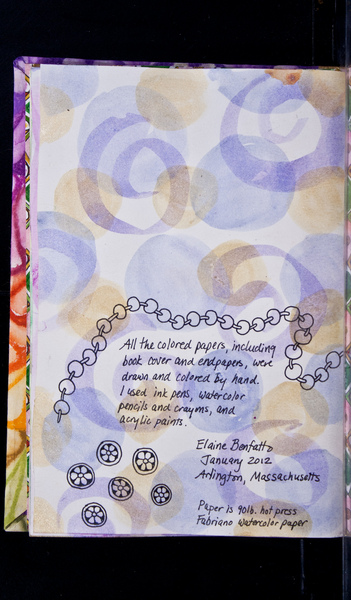 All the colored papers, including
book cover and endpapers, were
drawn and colored by hand.
I used ink pens, watercolor
pencils and crayons, and
acrylic paints.
Elaine Benfatto
January 2012
Arlington, Massachusetts
Paper is 90lb. hot press
Fabriano watercolor paper